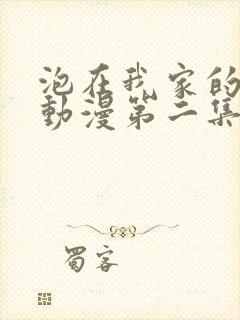 泡在我家的
動漫第二集
蜀客